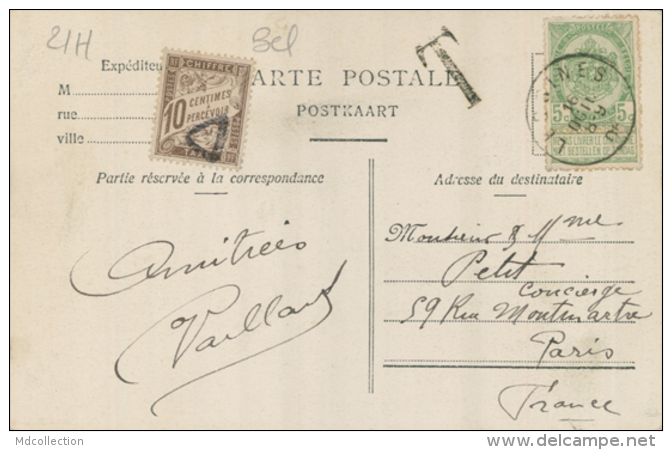 21H
Bcl
Expéditeu
M
rue
ville
CHIFFRE
10
CENTIMES
A
PERCEVOIR
TAXE
T
ARTE POSTAL
POSTKAART
POSTES
5
NES
Partie réservée à la correspondance
Adresse du destinataire
Amitiés
Vaillant
Monsieur & Mme
Petit
concierge
59 Rue Montmartre
Paris
France
Mdcollection
www.delcampe.net